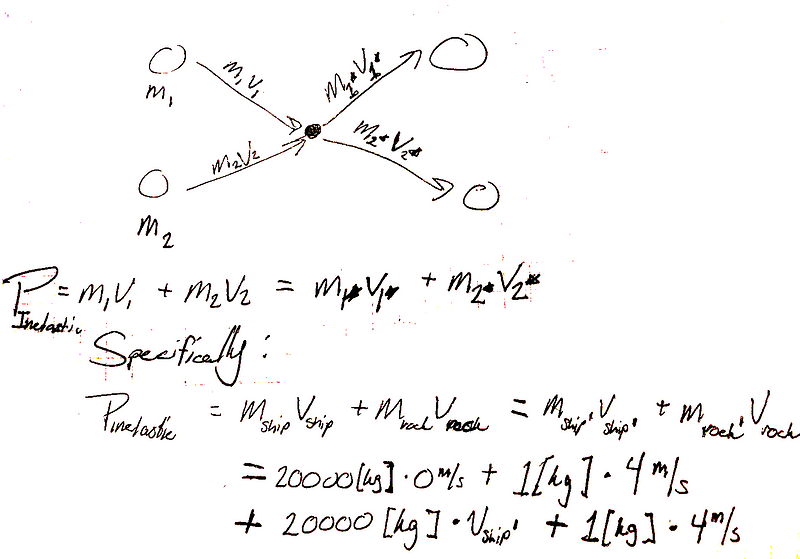 m₁
m₁V₁
m₁*V₁*
m₂V₂
m₂*V₂*
m₂
P Inelastic = m₁V₁ + m₂V₂ = m₁*V₁* + m₂*V₂*
Specifically:
P inelastic = m ship V ship + m rock V rock = m ship' V ship' + m rock' V rock
= 20000[kg] · 0 m/s + 1[kg] · 4 m/s
+ 20000 [kg] · V ship' + 1[kg] · 4 m/s